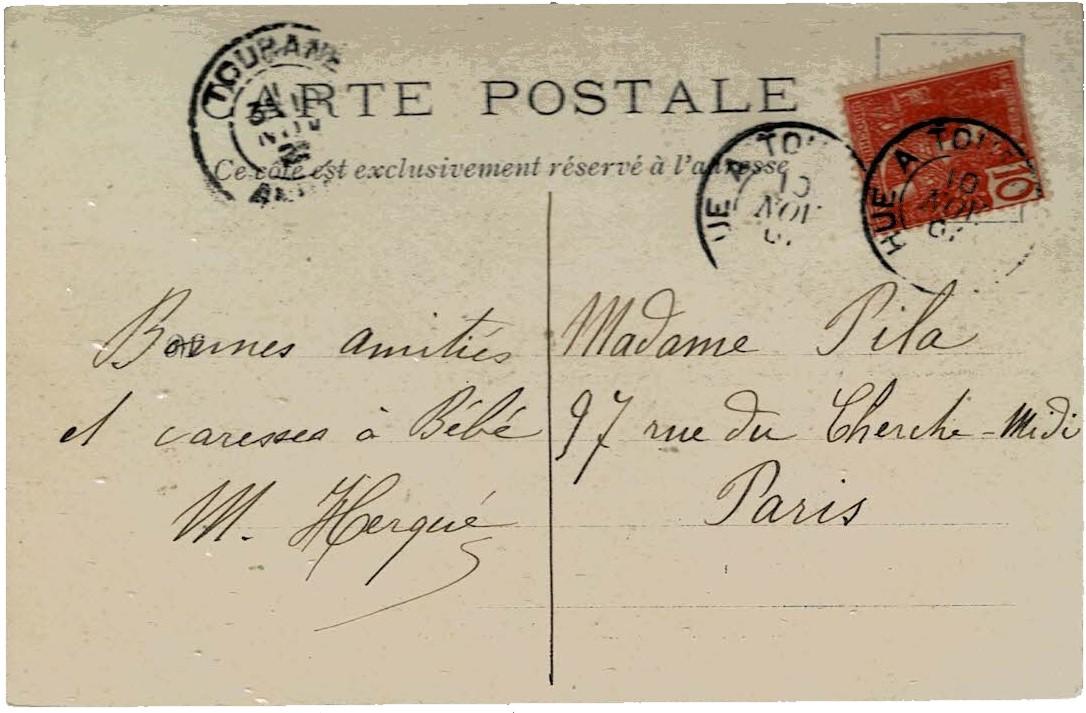 TOURANE
CARTE POSTALE
Ce côté est exclusivement réservé à l'adresse
HUE A TOU
10
NOV
10
HUE A TOU
10
NOV
Bonnes amitiés
et caresses à Bébé
M. Herqué
Madame Pila
97 rue du Cherche-Midi
Paris